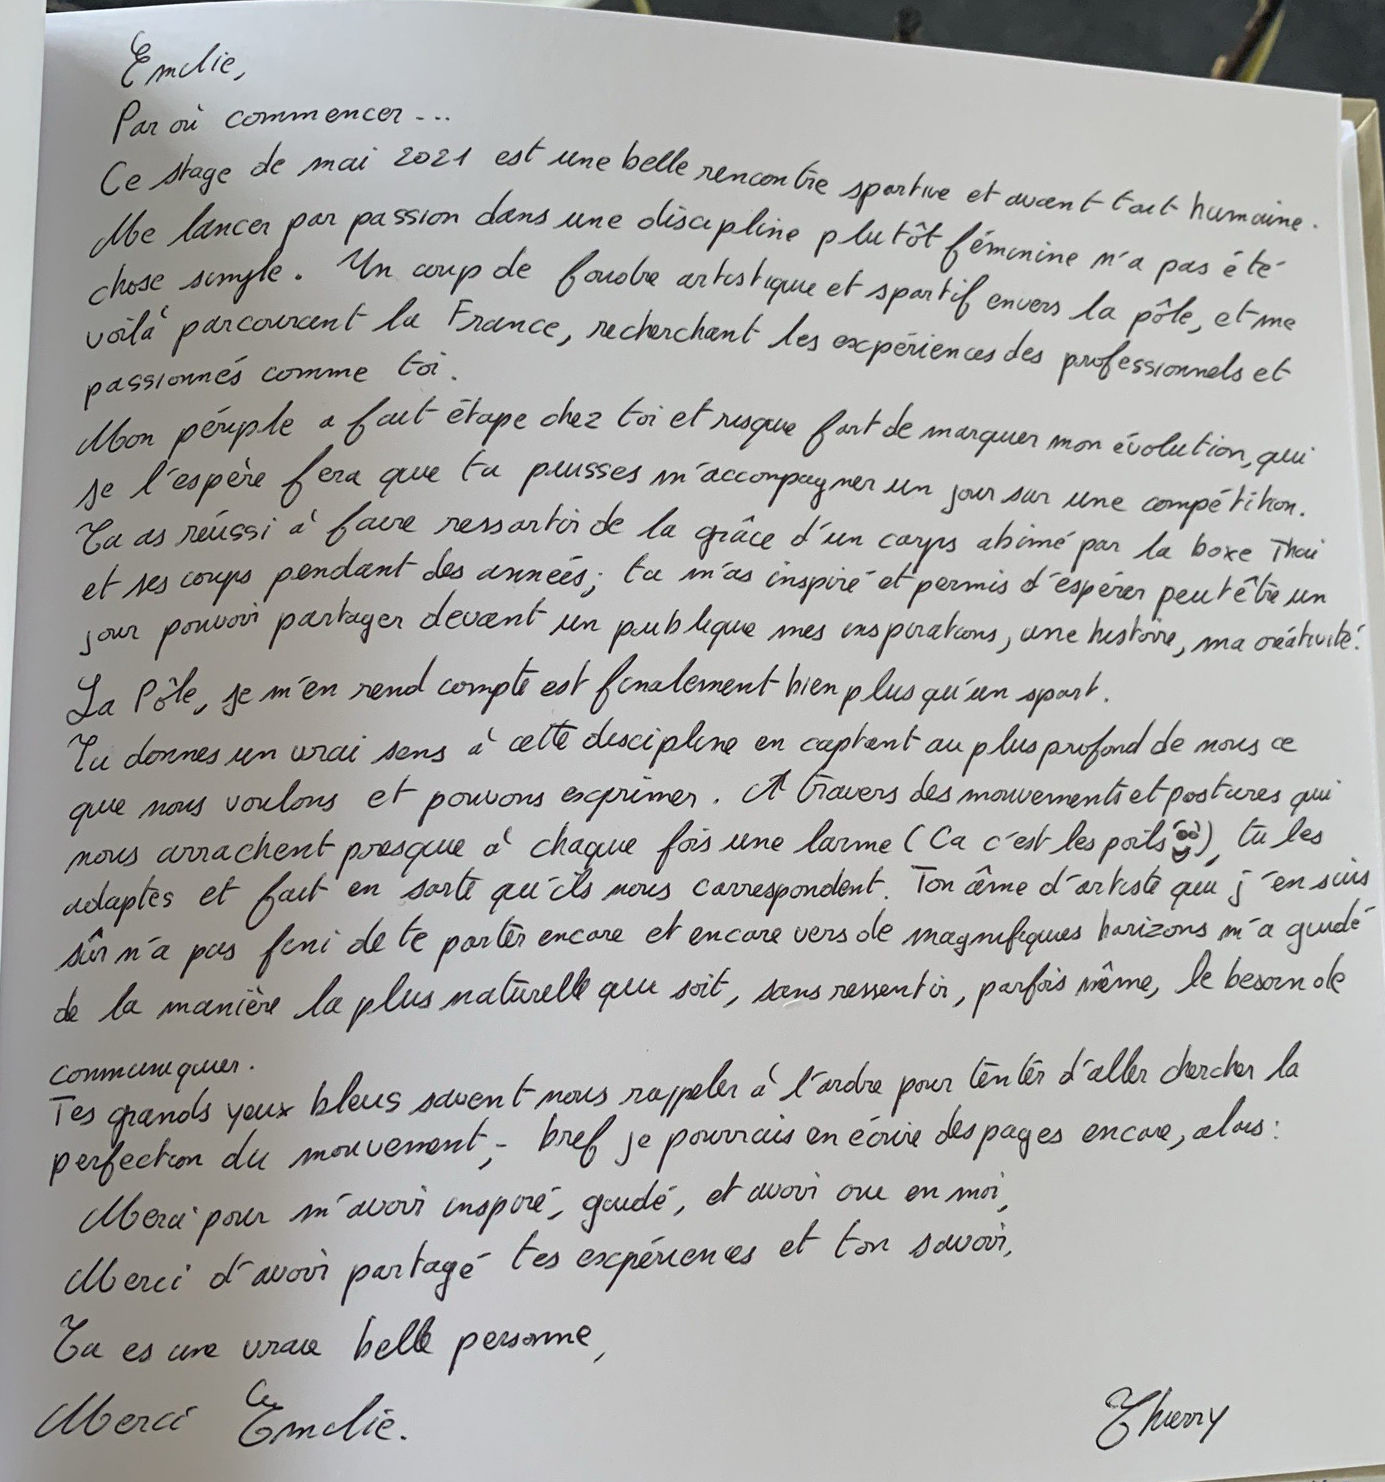 Emilie,
Par où commencer ...
Ce stage de mai 2021 est une belle rencontre sportive et avant tout humaine.
Me lancer par passion dans une discipline plutôt féminine n'a pas été
chose simple. Un coup de foudre artistique et sportif envers la pôle, et me
voilà parcourant la France, recherchant les expériences des professionnels et
passionnés comme toi.
Mon périple a fait étape chez toi et risque fort de marquer mon évolution, qui
je l'espère fera que tu puisses m'accompagner un jour sur une compétition.
Tu as réussi à faire ressortir de la grâce d'un corps abimé par la boxe Thai
et ses coups pendant des années; tu m'as inspiré et permis d'espérer peut être un
jour pouvoir partager devant un publique mes inspirations, une histoire, ma créativité.
La Pôle, je m'en rend compte est finalement bien plus qu'un sport.
Tu donnes un vrai sens à cette discipline en captant au plus profond de nous ce
que nous voulons et pouvons exprimer. A travers des mouvements et postures qui
nous arrachent presque à chaque fois une larme (Ca c'est les poils), tu les
adaptes et fait en sorte qu'ils nous correspondent. Ton âme d'artiste qui j'en suis
sûr n'a pas fini de te porter encore et encore vers de magnifiques horizons m'a guidé
de la manière la plus naturelle qui soit, sans ressentir, parfois même, le besoin de
communiquer.
Tes grands yeux bleus savent nous rappeler à l'ordre pour tenter d'aller chercher la
perfection du mouvement, - bref je pourrais en écrire des pages encore, alors:
Merci pour m'avoir inspiré, guidé, et avoir cru en moi,
Merci d'avoir partagé tes expériences et ton savoir,
Tu es une vraie belle personne,
Merci Emilie. Thierry